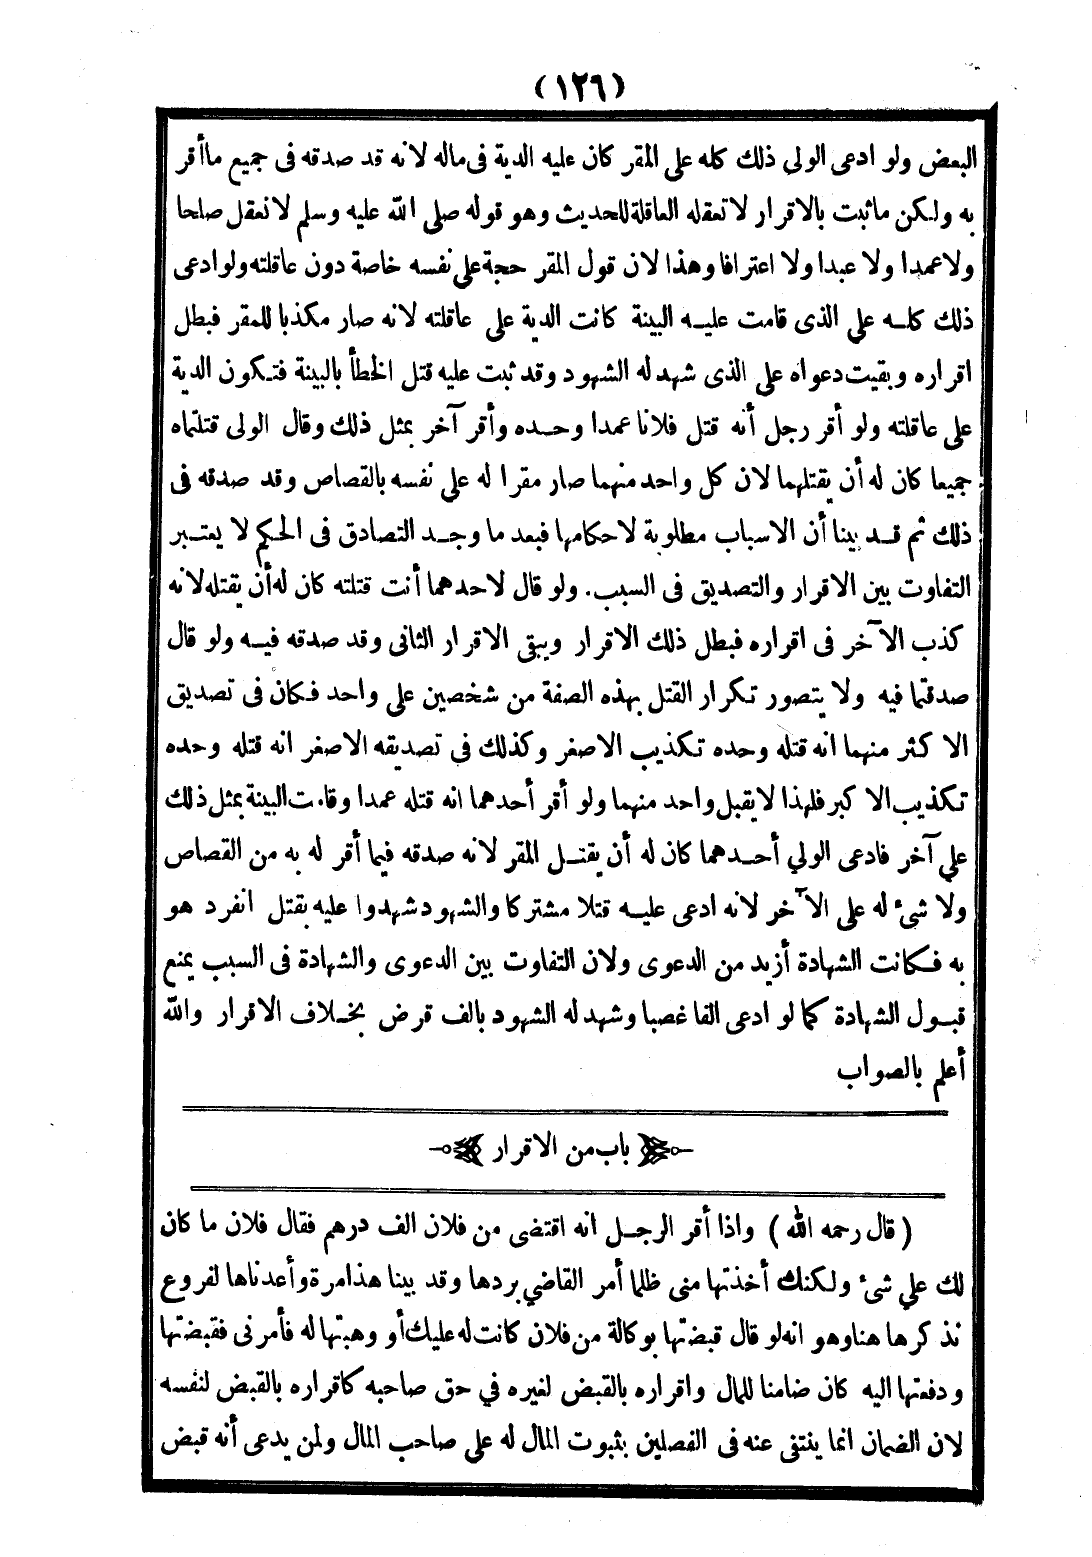 (١٢٦)
البعض ولو ادعى الولي ذلك كله على المقر كان عليه الدية فى ماله لانه قد صدقه فى جميع ماأقر
به ولكن ماثبت بالاقرار لاتعقله العاقلة للحديث وهو قوله صلى الله عليه وسلم لانعقل صلحا
ولاعمدا ولا عبدا ولا اعترافا وهذا لان قول المقر حجة على نفسه خاصة دون عاقلته ولو ادعى
ذلك كله على الذى قامت عليه البينة كانت الدية على عاقلته لانه صار مكذبا للمقر فبطل
اقراره وبقيت دعواه على الذى شهد له الشهود وقد ثبت عليه قتل الخطأ بالبينة فتكون الدية
على عاقلته ولو أقر رجل أنه قتل فلانا عمدا وحده وأقر آخر بمثل ذلك وقال الولى قتلتماه
جميعا كان له أن يقتلهما لان كل واحد منهما صار مقرا له على نفسه بالقصاص وقد صدقه فى
ذلك ثم قد بينا أن الاسباب مطلوبة لاحكامها فبعد ما وجد التصادق فى الحكم لا يعتبر
التفاوت بين الاقرار والتصديق فى السبب. ولو قال لاحدهما أنت قتلته كان له أن يقتله لانه
كذب الآخر فى اقراره فبطل ذلك الاقرار ويبقى الاقرار الثانى وقد صدقه فيه ولو قال
صدقتما فيه ولا يتصور تكرار القتل بهذه الصفة من شخصين على واحد فكان فى تصديق
الاكثر منهما انه قتله وحده تكذيب الاصغر وكذلك فى تصديقه الاصغر انه قتله وحده
تكذيب الاكبر فلهذا لايقبل واحد منهما ولو أقر أحدهما انه قتله عمدا وقامت البينة بمثل ذلك
علي آخر فادعى الولي أحدهما كان له أن يقتل المقر لانه صدقه فيما أقر له به من القصاص
ولا شئ له على الآخر لانه ادعى عليه قتلا مشتركا والشهود شهدوا عليه بقتل انفرد هو
به فكانت الشهادة أزيد من الدعوى ولان التفاوت بين الدعوى والشهادة فى السبب يمنع
قبول الشهادة كما لو ادعى الفا غصبا وشهد له الشهود بالف قرض بخلاف الاقرار والله
أعلم بالصواب
باب من الاقرار
(قال رحمه الله) واذا أقر الرجل انه اقتضى من فلان الف درهم فقال فلان ما كان
لك علي شئ ولكنك أخذتها منى ظلما أمر القاضي بردها وقد بينا هذا مرة وأعدناها لفروع
نذكرها هنا وهو انه لو قال قبضتها بوكالة من فلان كانت له عليك أو وهبتها له فأمرنى فقبضتها
ودفعتها اليه كان ضامنا للمال واقراره بالقبض لغيره في حق صاحبه كاقراره بالقبض لنفسه
لان الضمان انما ينتفى عنه فى الفصلين بثبوت المال له على صاحب المال ولمن يدعى أنه قبض